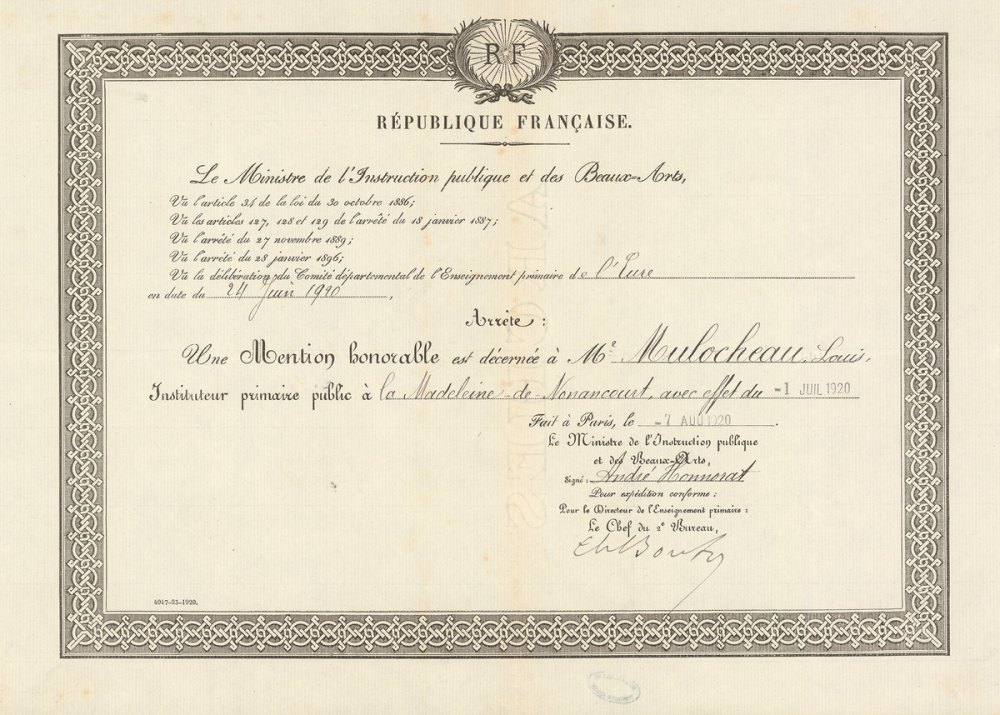 RF
RÉPUBLIQUE FRANÇAISE.
Le Ministre de l'Instruction publique et des Beaux-Arts,
Vu l'article 34 de la loi du 30 octobre 1886;
Vu les articles 127, 128 et 129 de l'arrêté du 18 janvier 1887;
Vu l'arrêté du 27 novembre 1889;
Vu l'arrêté du 28 janvier 1896;
Vu la délibération du Comité départemental de l'Enseignement primaire de l'Eure
en date du 24 Juin 1920,
Arrête:
Une Mention honorable est décernée à Mr Mulocheau, Louis,
Instituteur primaire public à la Madeleine-de-Nonancourt, avec effet du -1 JUIL 1920
Fait à Paris, le -7 AOU 1920.
Le Ministre de l'Instruction publique
et des Beaux-Arts,
Signé: André Honnorat
Pour expédition conforme:
Pour le Directeur de l'Enseignement primaire:
Le Chef du 2e Bureau,
4047-23-1920.